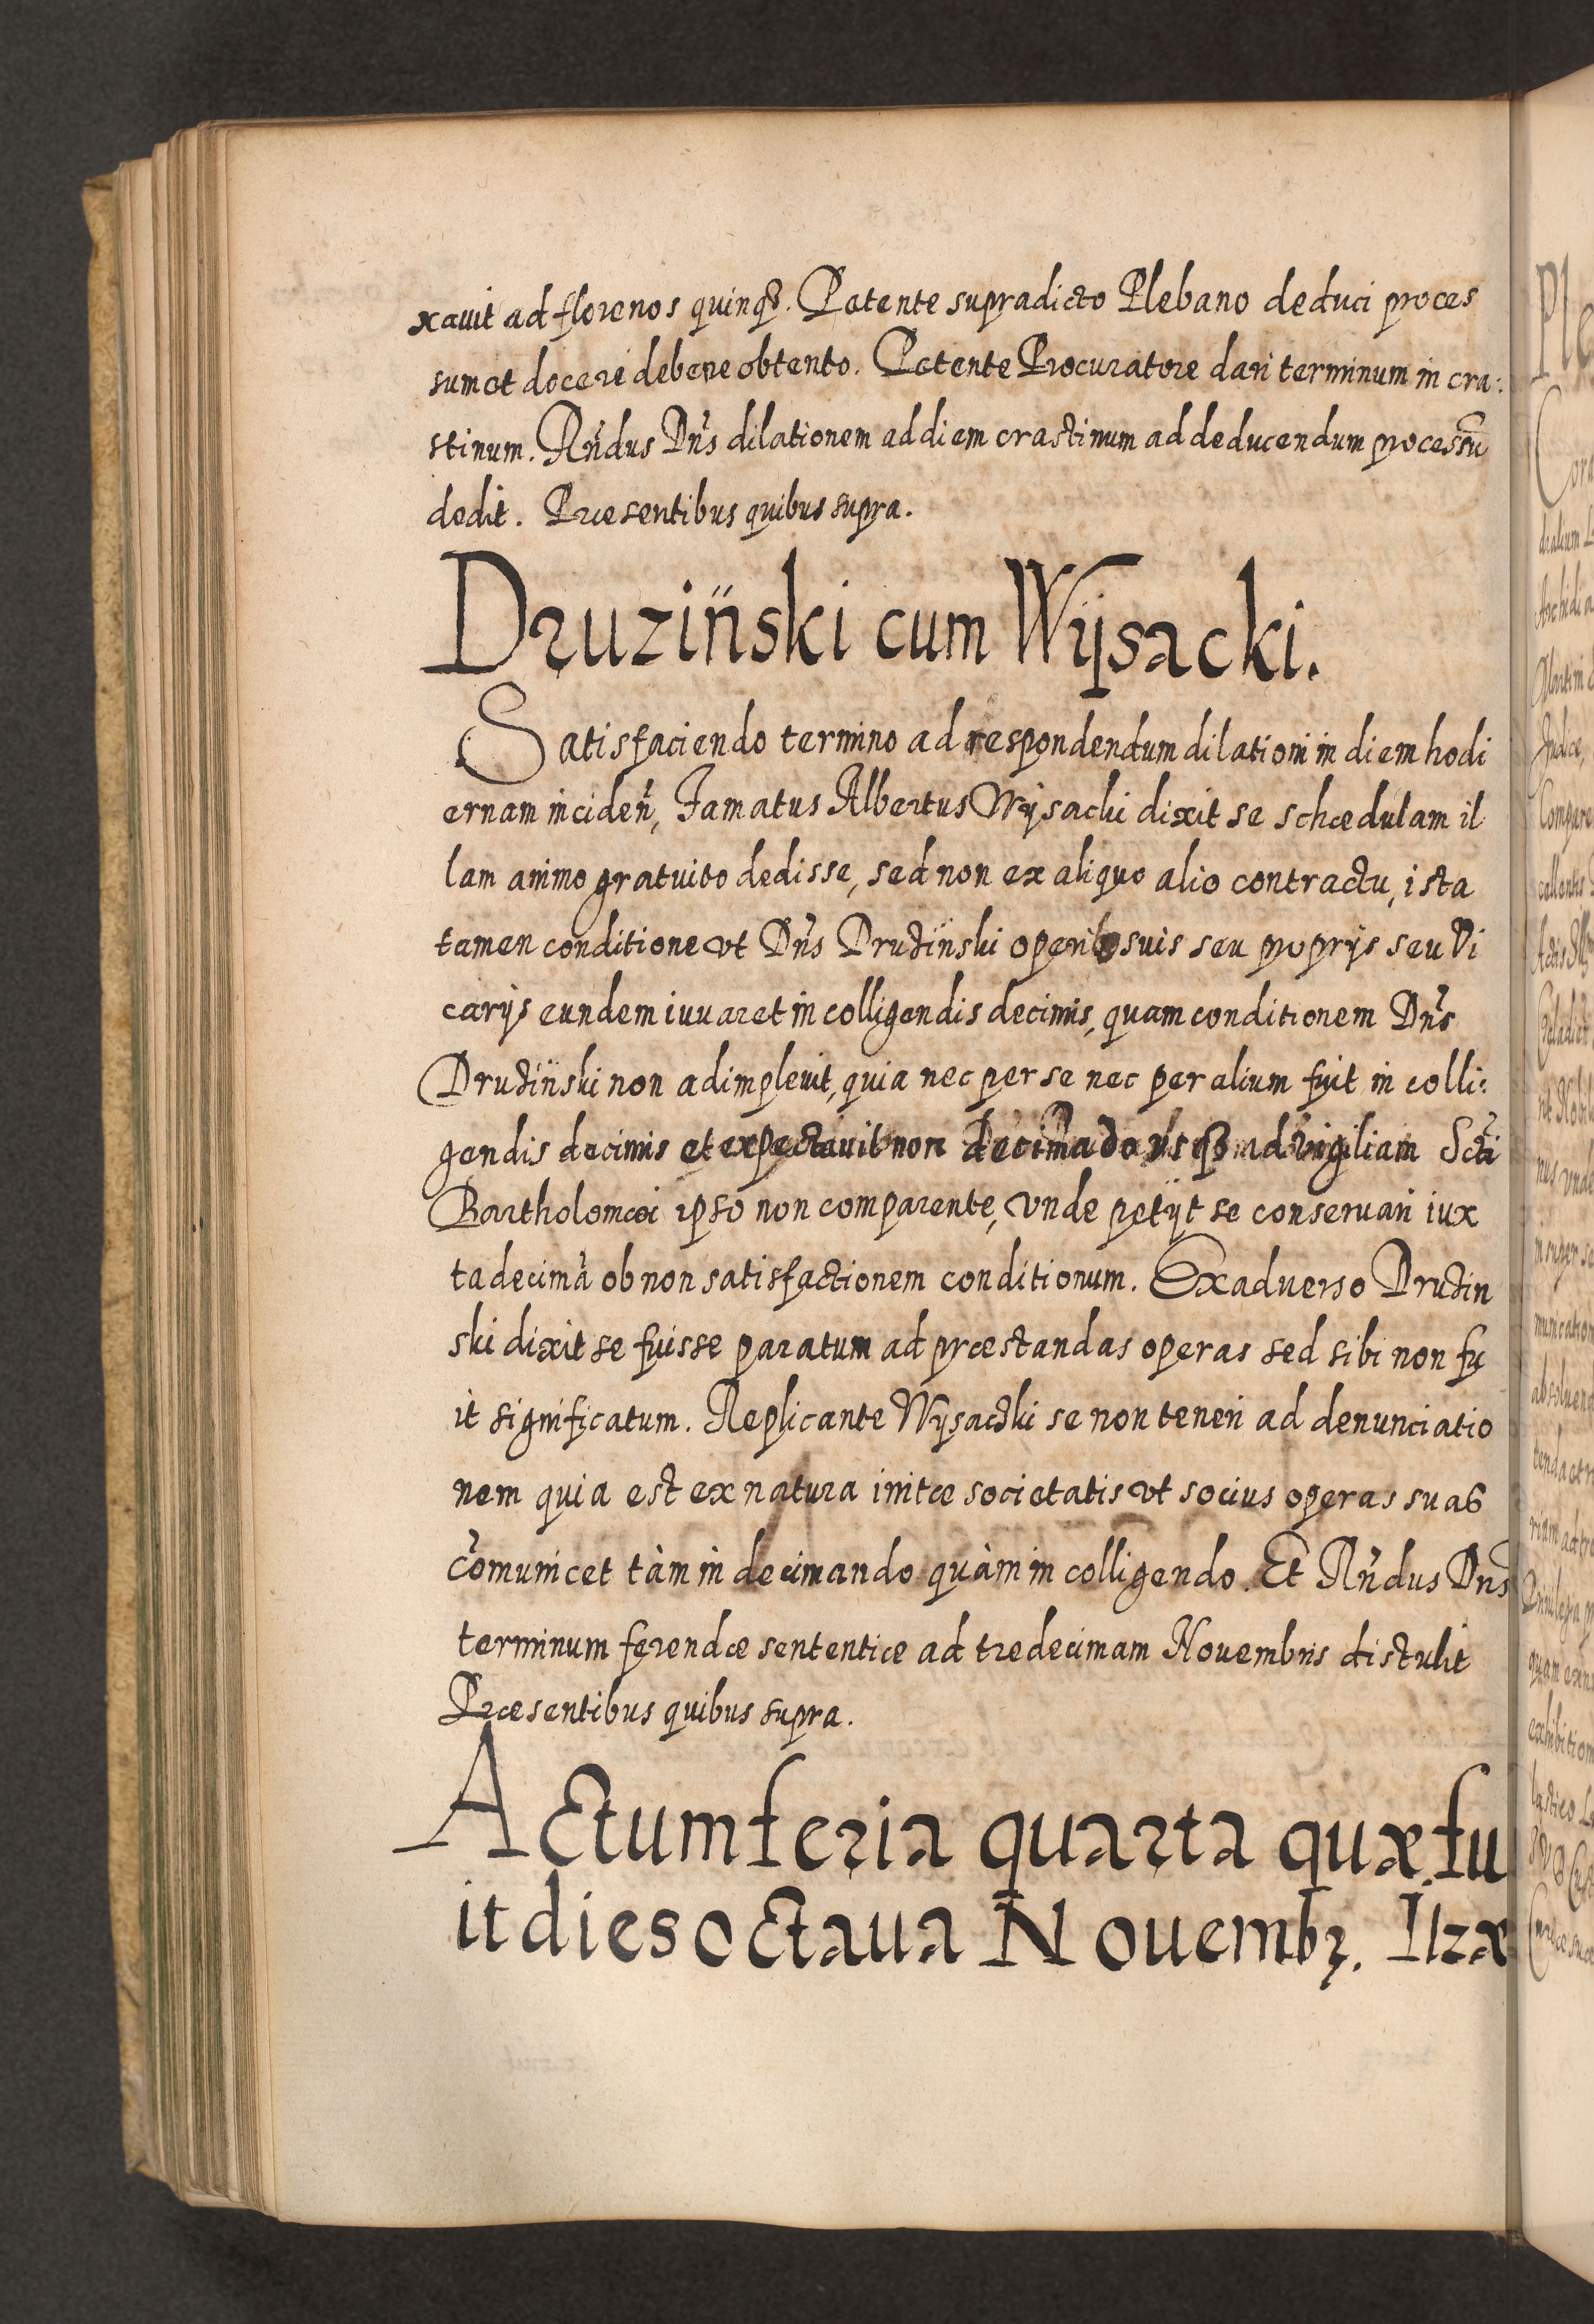 xauit ad florenos quinqꝫ. Petente supradicto Plebano deduci proces
sum et docere debere obtento. Petente Procuratore dari terminum in cra:
stinum. Rñdus Dñs dilationem ad diem crastinum ad deducendum processũ
dedit. Præsentibus quibus supra.
Druzinski cum Wÿsacki.
Satisfaciendo termino ad respondendum dilationi in diem hodi
ernam inciden̄, Famatus Albertus Wÿsacki dixit se schædulam il
lam animo gratuito dedisse, sed non ex aliquo alio contractu, ista
tamen conditione vt Dñs Druzinski operibꝰ suis seu proprÿs seu Vi
carÿs eundem iuuaret in colligendis decimis, quam conditionem Dñs
Druzinski non adimpleuit, quia nec per se nec per alium fuit in colli:
gendis decimis et expectauit non decimado vsqꝫ ad vigiliam Scti
Bartholomæi ipso non comparente, vnde petÿt se conseruari iux
ta decimã ob non satisfactionem conditionum. Ex aduerso Druzin
ski dixit se fuisse paratum ad præstandas operas sed sibi non fu
it significatum. Replicante Wÿsacki se non teneri ad denunciatio
nem quia est ex natura initæ societatis vt socius operas suas
com̃unicet tàm in decimando quàm in colligendo. Et Rñdus Dñs
terminum ferendæ sententiæ ad tredecimam Nouembris distulit
Præsentibus quibus supra.
Actum feria quarta quæ fu
it dies octaua Nouembꝫ. Ilzæ